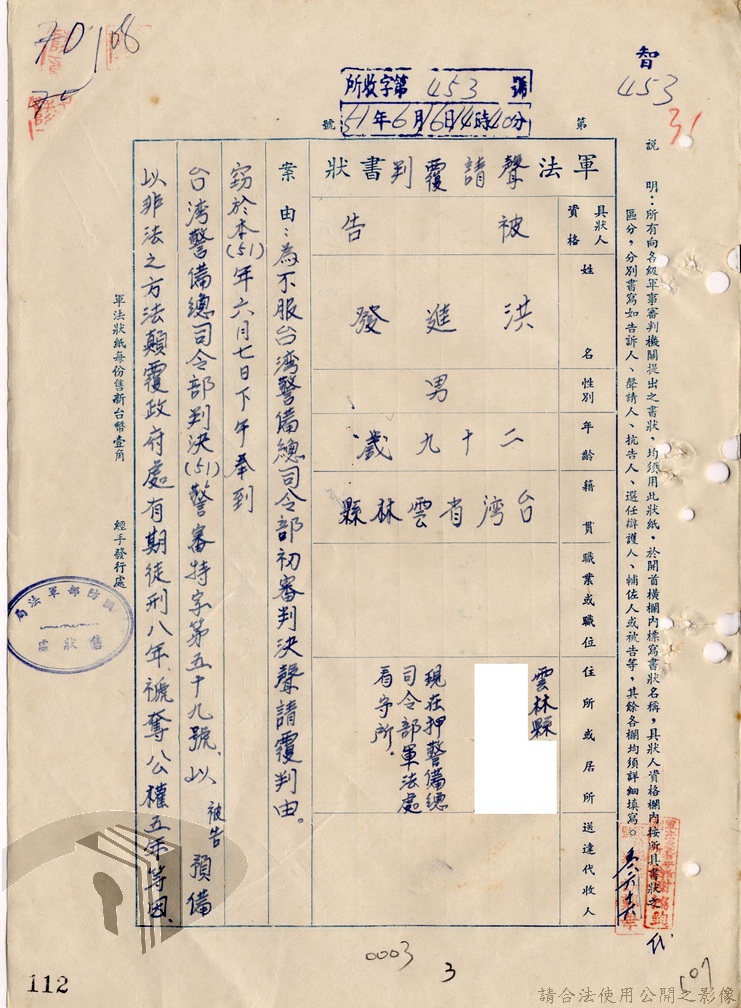 70108
智
453
31
所收字第453號
51年6月16日14時40分
第
號
說明：所有向各級軍事審判機關提出之書狀，均須用此狀紙，於開首橫欄內標寫書狀名稱，具狀人資格欄內按所具書狀之
區分，分別書寫如告訴人、聲請人、抗告人、選任辯護人、輔佐人或被告等，其餘各欄均須詳細填寫。
軍法聲請覆判書狀
具狀人資格
被告
姓名
洪進發
性別
男
年齡
二十九歲
籍貫
台湾省雲林縣
職業或職位
住所或居所
雲林縣
現在押警備總
司令部軍法處
看守所。
送達代收人
案由：為不服台湾警備總司令部初審判決聲請覆判由。
竊於本(51)年六月七日下午奉到
台湾警備總司令部判決(51)警審特字第五十九號、以被告預備
以非法之方法顛覆政府處有期徒刑八年、褫奪公權五年等因、
軍法狀紙每份售新台幣壹角
經手發行處
國防部軍法局
售狀處
0003
3
107
112
請合法使用公開之影像